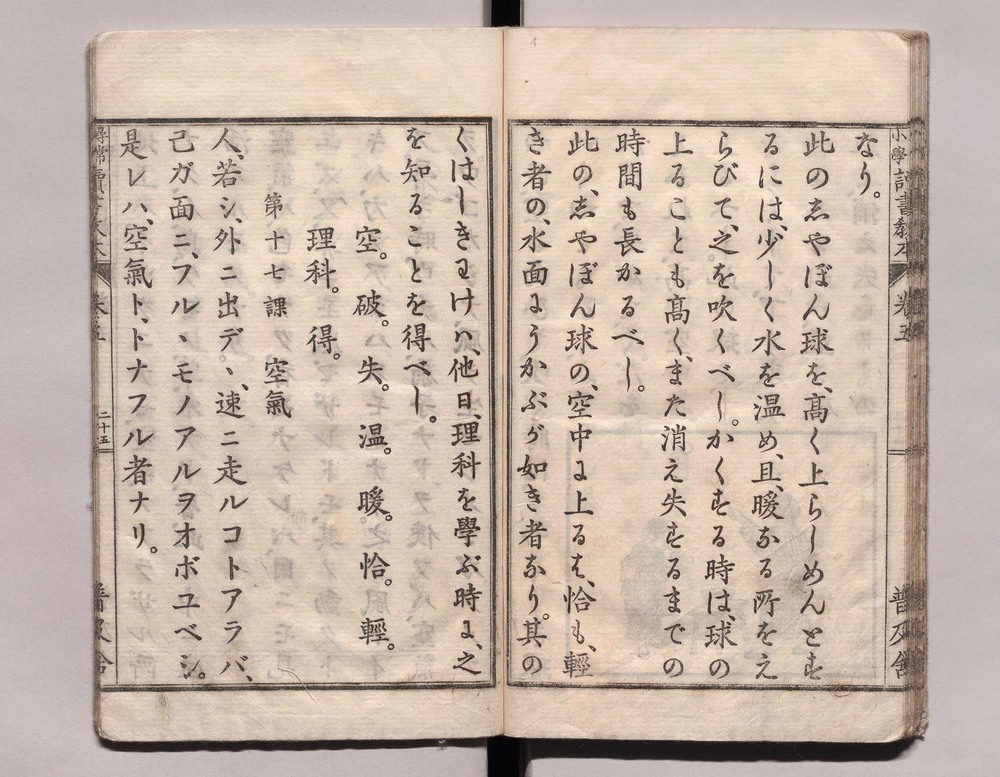 なり。
此のしやぼん球を、高く上らしめんとす
るには、少しく水を温め、且、暖なる所をえ
らびて、之を吹くべし。かくする時は、球の
上ることも高く、また消え失するまでの
時間も長かるべし。
此の、しやぼん球の、空中に上るは、恰も、輕
き者の、水面にうかぶが如き者なり。其の
くはしきわけハ、他日、理科を學ぶ時に、之
を知ることを得べし。
空。破。失。温。暖。恰。輕。
理科。得。
第十七課 空氣
人、若シ、外ニ出デヽ、速ニ走ルコトアラバ、
己ガ面ニ、フルヽモノアルヲオボユベシ。
是レハ、空氣ト、トナフル者ナリ。
卷五
二十五
普及舍